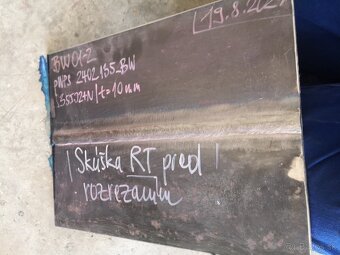 19.8.202
BW 01-2
pWPS 2402135_BW
S355J2+N / t=10mm
Skúška RT pred
rozrezaním